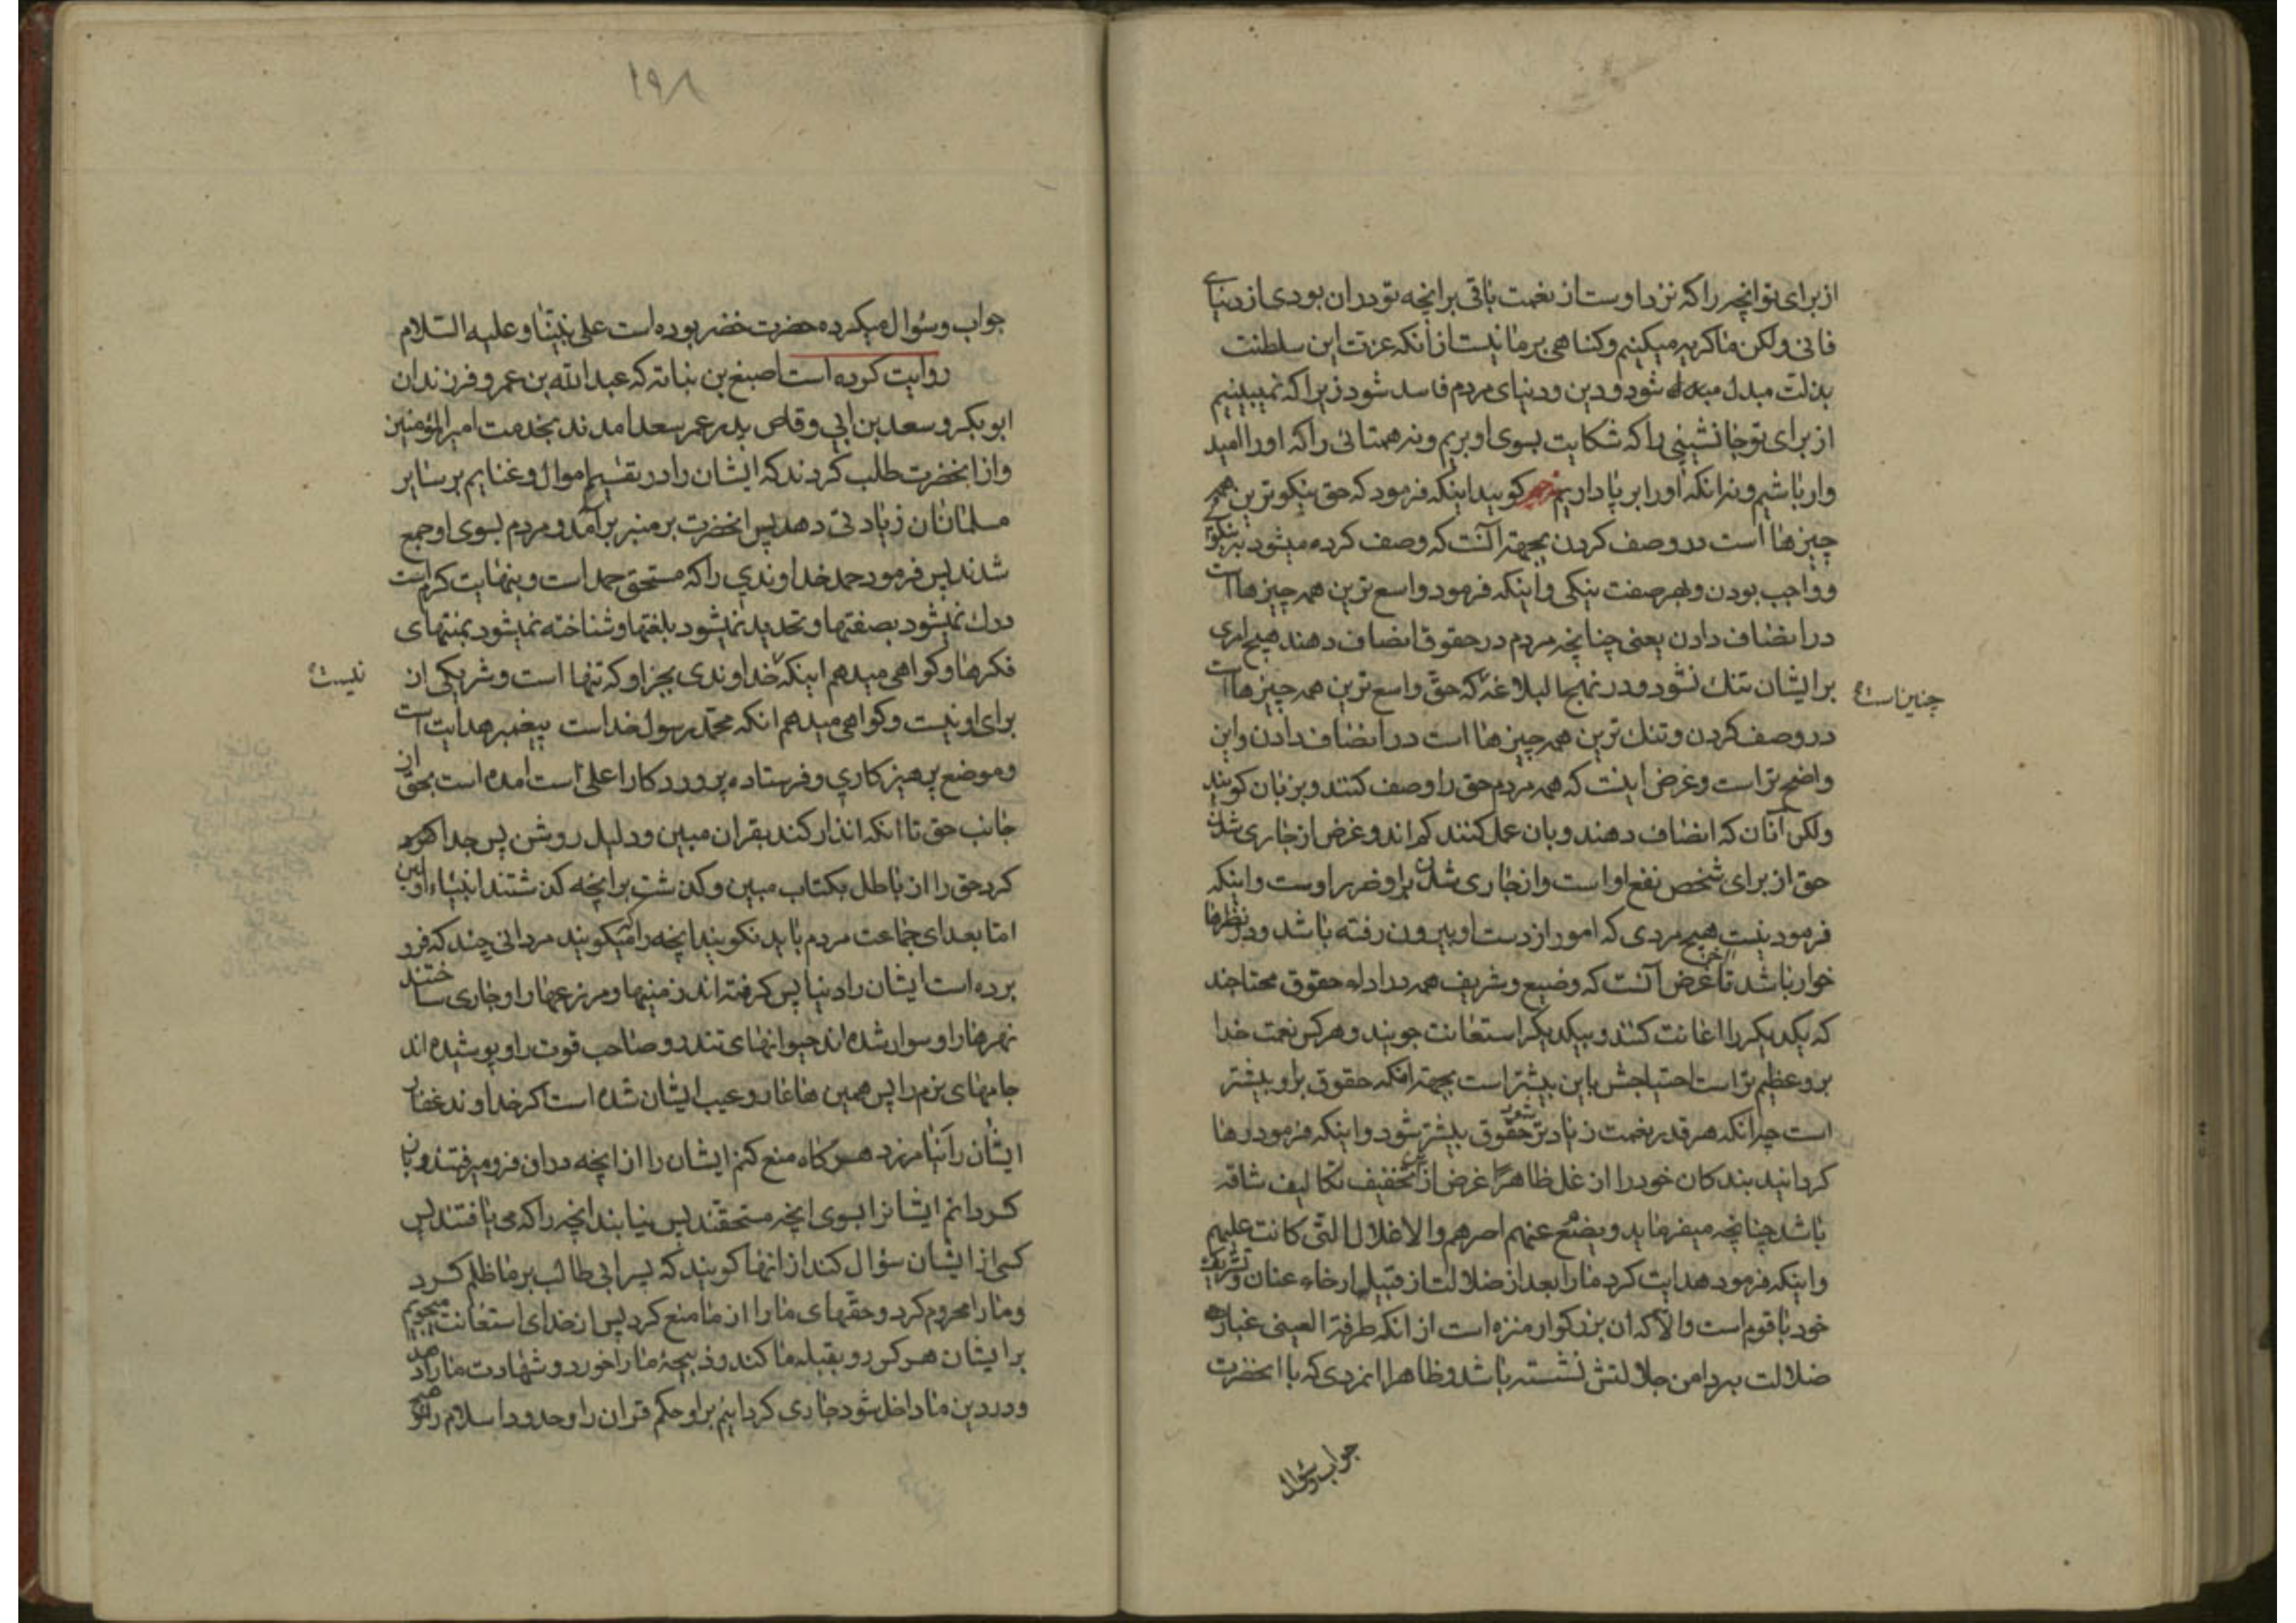 از برای تو انچه را که نزد اوست از نعمت باقی بر انچه تو در ان بودی از دنیای
فانی ولکن ما کریه میکنیم و کناهی بر ما نیست از انکه عزت این سلطنت
بذلت مبدل شود و دین و دنیای مردم فاسد شود زیرا که نمیبینیم
از برای تو جانشینی را که شکایت بسوی او بریم و نه همتائی را که او را امید
وار باشیم و نه انکه او را بر پا داریم مترجم کوید اینکه فرمود که حق نیکوترین همه
چیزها است در وصف کردن بجهته آنست که وصف کرده میشود به نیکوئی
و واجب بودن و بهر صفت نیکی و اینکه فرمود واسع ترین همه چیزها است
در انصاف دادن یعنی چنانچه مردم در حقوق انصاف دهند هیچ امری
بر ایشان تنك نشود و در نهج البلاغه که حق واسع ترین همه چیزها است
چنین است
در وصف کردن و تنك ترین همه چیزها است در انصاف دادن و این
واضح تر است و غرض اینست که همه مردم حق را وصف کنند و بزبان کویند
ولکن آنان که انصاف دهند و بان عمل کنند کم اند و غرض از جاری شدن
حق از برای شخص نفع او است و از جاری شدن بر او ضرر اوست و اینکه
فرمود نیست هیچ مردی که امور از دست او بیرون رفته باشد و در نظرها
خوار باشد تا آخر غرض آنست که وضیع و شریف همه در اداء حقوق محتاجند
که یکدیکر را اعانت کنند و بیکدیکر استعانت جویند و هر کس نعمت خدا
بر و عظیم تر است احتیاجش باین بیشتر است بجهته انکه حقوق بر او بیشتر
است چرا که هر قدر نعمت زیادتر شود حقوق بیشتر شود و اینکه فرمود رها
کردانید بندکان خود را از غل ظاهرا غرض از تخفیف تکالیف شاقه
باشد چنانچه میفرماید و یضع عنهم اصرهم والاغلال التی کانت علیهم
و اینکه فرمود هدایت کرد ما را بعد از ضلالت از قبیل ارخاء عنان و تشریك
خود با قوم است و الا که ان بزرکوار منزه است از انکه طرفة العینی غبار
ضلالت بر دامن جلالتش نشسته باشد و ظاهرا انمردی که با انحضرت
جواب و سؤال
۱۹۸
جواب و سؤال میکرده حضرت خضر بوده است علی نبینا و علیه السلام
روایت کرده است اصبغ بن نباته که عبد الله بن عمر و فرزندان
ابو بکر و سعد بن ابی وقاص پدر عمر سعد امدند بخدمت امیر المؤمنین
و از انحضرت طلب کردند که ایشان را در تقسیم اموال و غنایم بر سایر
مسلمانان زیادتی دهد پس انحضرت بر منبر بر آمد و مردم بسوی او جمع
شدند پس فرمود حمد خداوندی را که مستحق حمد است و بنهایت کرم است
درك نمیشود بصفتها و تحدید نمیشود بلغتها و شناخته نمیشود بمنتهای
فکرها و کواهی میدهم اینکه خداوندی بجز او که تنها است و شریکی از
نیست
برای او نیست و کواهی میدهم انکه محمد رسول خداست پیغمبر هدایت است
و موضع پرهیزکاری و فرستاده پروردکار اعلی است امده است بحق از
جانب حق تا انکه انذار کند بقران مبین و دلیل روشن پس جدا
کرد حق را از باطل بکتاب مبین و کذشت بر انچه کذشتند انبیاء اولین
اما بعد ای جماعت مردم باید نکویند انچه را میکویند مردانی چند که فرو
برده است ایشان را دنیا پس کرفته اند زمینها و مزرعها را و جاری ساختند
نهرها را و سوار شده اند حیوانهای تند رو صاحب قوت را و پوشیده اند
جامهای نرم را پس همین ها عار و عیب ایشان شده است اکر خداوند غفار
ایشان را نیامرزد هر کاه منع کنم ایشان را از انچه در ان فرو میرفتند و باز
کردانم ایشانرا بسوی انچه مستحقند پس نیابند انچه را که می یافتند پس
کسی از ایشان سؤال کند از انها کویند که پسر ابی طالب بر ما ظلم کرد
و ما را محروم کرد و حقهای ما را از ما منع کرد پس از خدای استعانت میجویم
بر ایشان هر کس رو بقبله ما کند و ذبیحه ما را خورد و شهادت ما را دهد
و در دین ما داخل شود جاری کردانیم بر او حکم قران را و حدود اسلام را